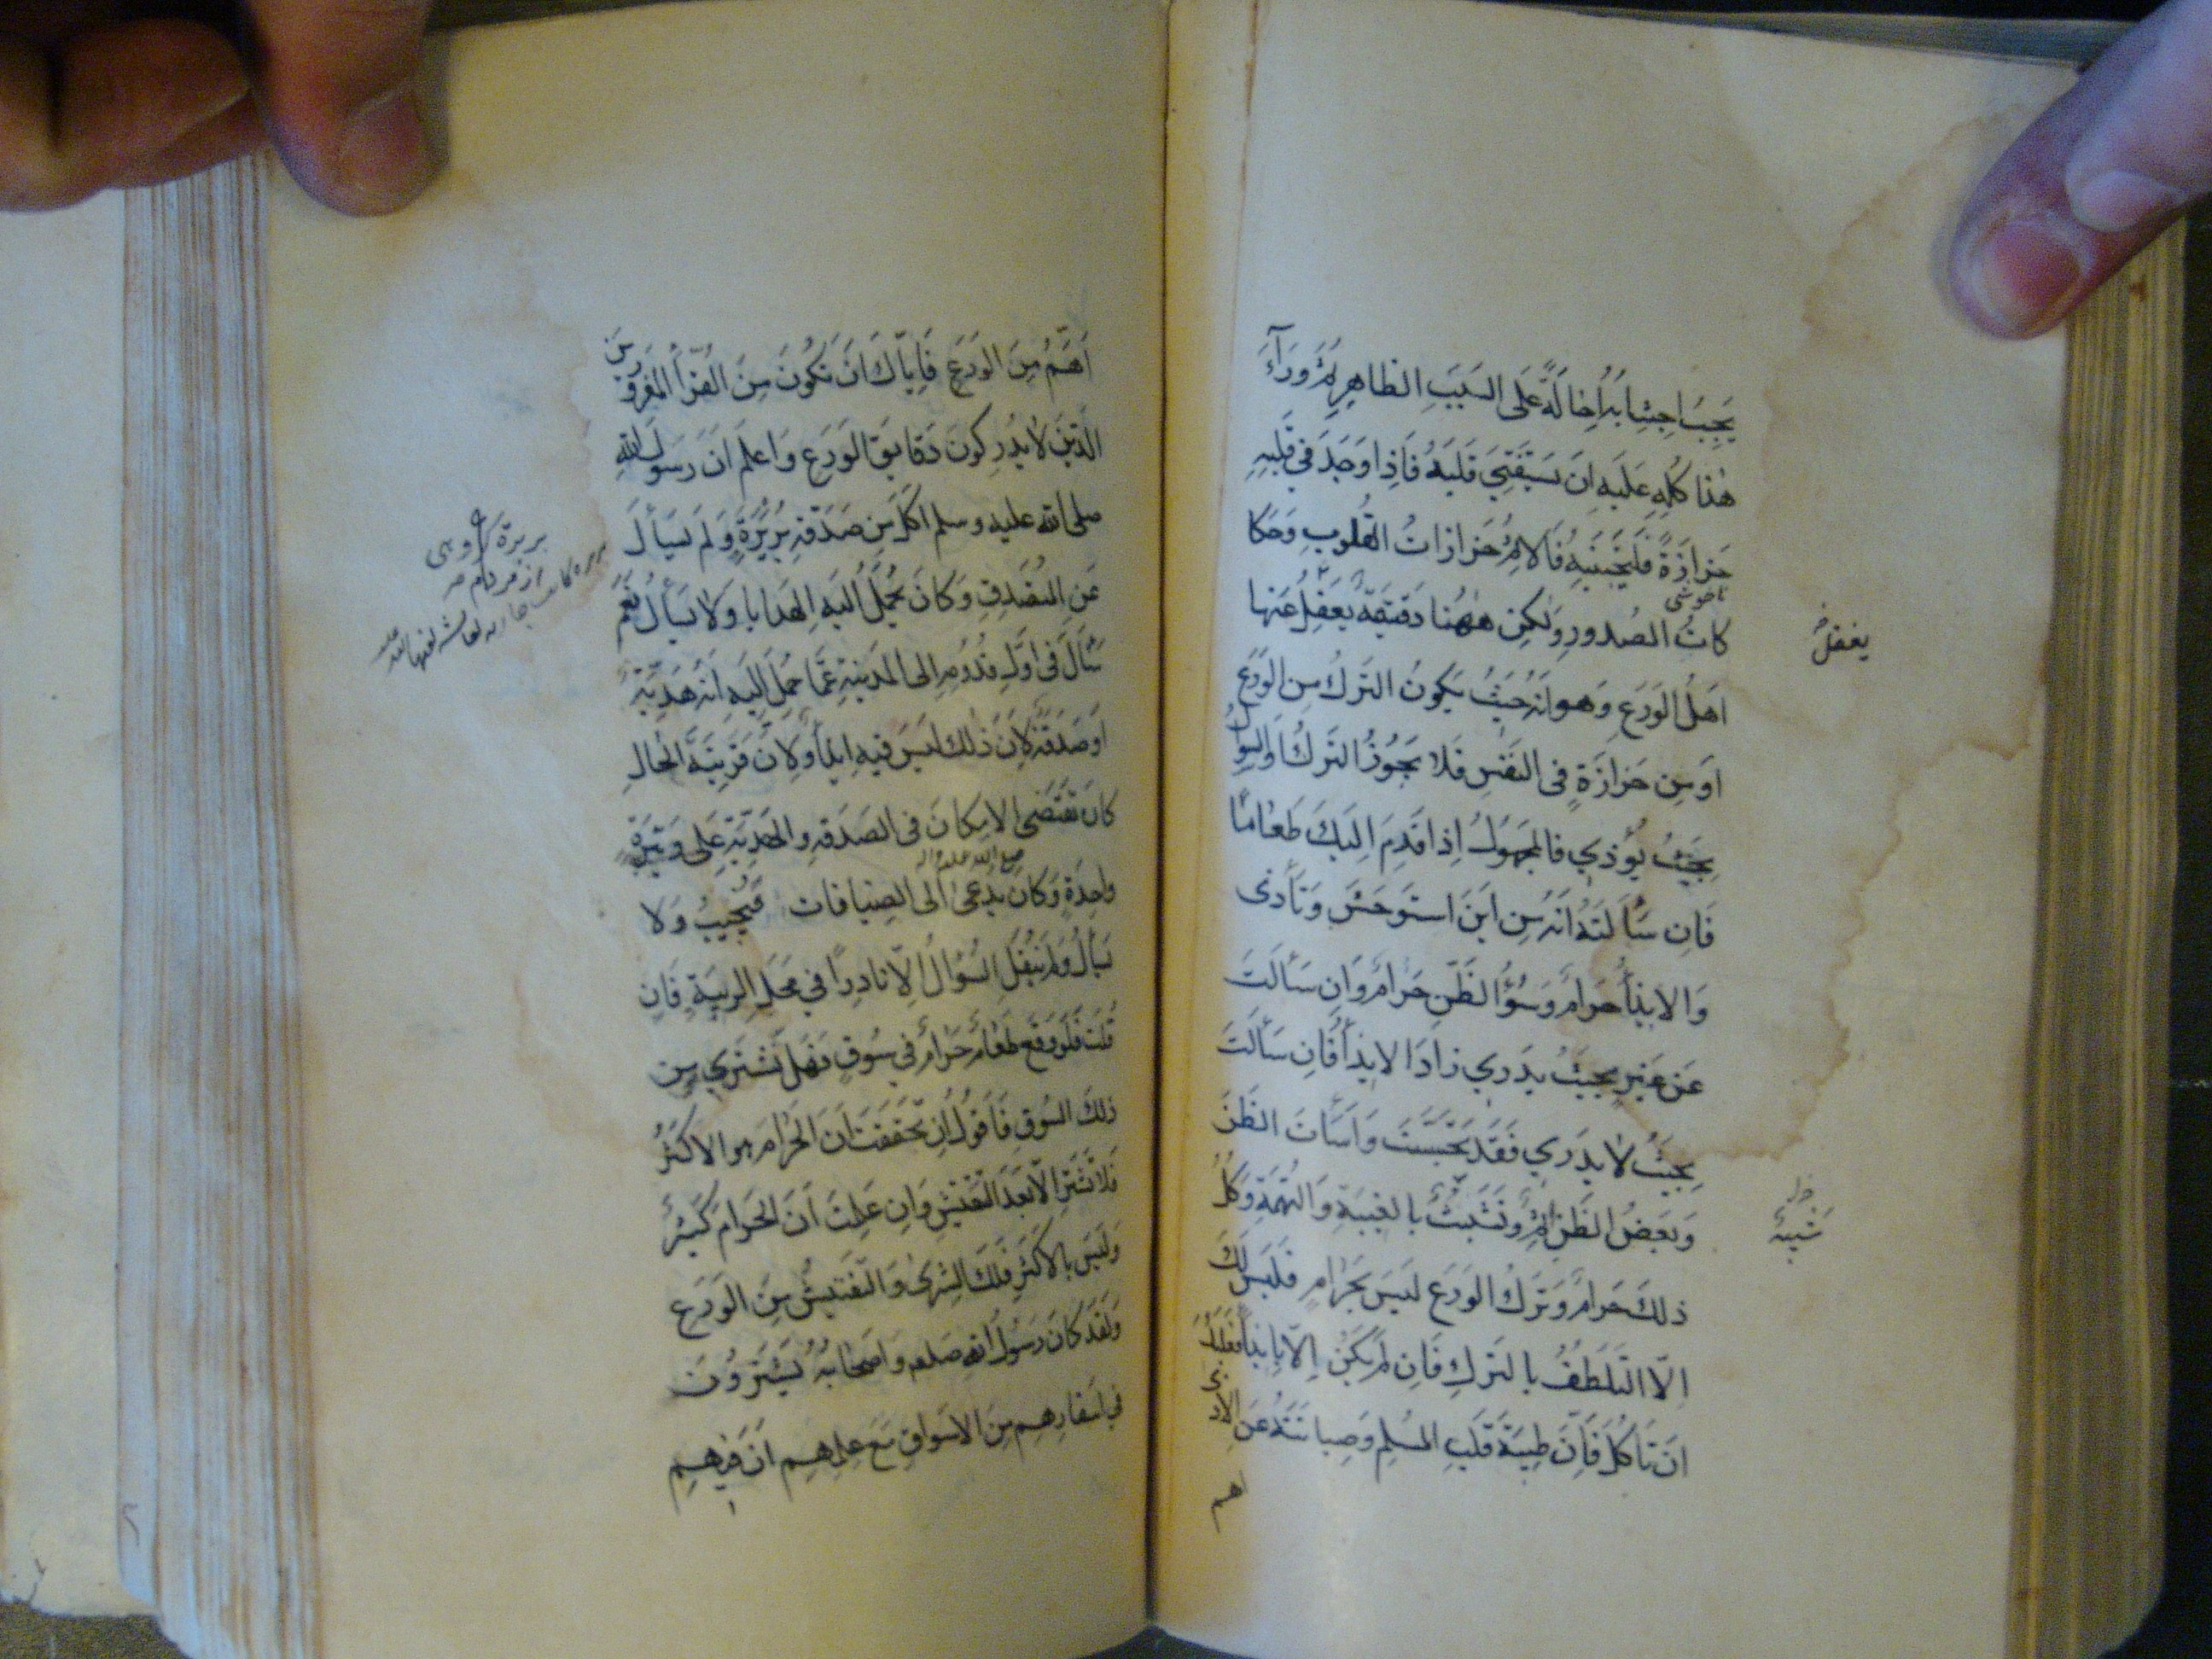 يَجِبُ اجتِنابُهُ اِحالَةً عَلَى السَبَبِ الظاهِرِ ثُمَّ وَرَآءَ
هٰذا كُلِّهِ عَلَيهِ اَن يَستَفتِيَ قَلبَهُ فَاِذا وَجَدَ في قَلبِهِ
حَزازَةً فَليَجتَنِبهُ فَالاِثمُ حَزازاتُ القُلوبِ وَحَكا
ناخوشى
كاتُ الصُدورِ وَلٰكِن هٰهُنا دَقيقَةٌ يَغفِلُ عَنها
يغفل
اَهلُ الوَرَعِ وَهو اَنَّهُ حَيثُ يَكونُ التَركُ مِن الوَرَعِ
اَو مِن حَزازَةٍ فى النَفسِ فَلا يَجُوزُ التَركُ وَالسُؤالُ
بِحَيثُ يُؤذي فالمَجهُولُ اِذا قَدَّمَ اِلَيكَ طَعامًا
فَاِن سَأَلتَهُ اَنَّهُ مِن اَينَ استَوحَشَ وَتَأَذى
وَالايذآءُ حَرامٌ وَسُوءُ الظَنِّ حَرامٌ وَاِن سَأَلتَ
عَن غَيرِهِ بِحَيثُ يَدري زادَ الايذآءُ فَاِن سَأَلتَ
بِحَيثُ لا يَدري فَقَد تَجَسَّستَ وَاَسَأتَ الظَنَّ
وَبَعضُ الظَنِّ اِثمٌ وَتَشَبَّثتَ بالغيبَةِ وَالتُهمَةِ وَكُلُّ
ذلِكَ حَرامٌ وَتَركُ الوَرَعِ لَيسَ بِحَرامٍ فَلَيسَ لَكَ
اِلّا التَلَطُّفُ بالتَركِ فَاِن لَم يَكُن اِلّا بايذآءٍ فَعَلَيكَ
اَن تَأكُلَ فَاِنَّ طيبَةَ قَلبِ المُسلِمِ وَصِيانَتَهُ عَنِ الاَذى
اهم
اَهَمُّ مِنَ الوَرَعِ فَاِيّاكَ اَن تَكُونَ مِنَ القُرّآءِ المَغرورينَ
الّذينَ لا يُدرِكونَ دَقايِقَ الوَرَعِ وَاعلَم اَنَّ رَسولَ اللهِ
صلى الله عليه وسلم اَكَلَ مِن صَدَقَةِ بَريرَةٍ وَلَم يَسأَل
عَنِ المُتَصَدِّقِ وَكانَ يُحمَلُ اِلَيهِ الهَدايا وَلا يَسأَلُ نَعَم
سَأَلَ فى اَوَّلِ قُدُومِهِ الى المَدينَةِ عَمّا حُمِلَ اِلَيهِ اَنَّهُ هَدِيَّةٌ
اَو صَدَقَةٌ لِاَنَّ ذٰلِكَ لَيسَ فيهِ ايذآءٌ وَلِاَنَّ قَرينَةَ الحالِ
كانَ تَقتَضى الامكانَ فى الصَدَقَةِ وَالهَدِيَّةِ عَلى وَتيرَةٍ
واحِدَةٍ وَكانَ يُدعى الى الضِيافات فَيُجيبُ وَلا
يَسأَلُ وَلَم يُنقَلِ السُؤالُ اِلّا نادِرًا في مَحَلِّ الريبَةِ فَاِن
قُلتَ فَلَو وَقَعَ طَعامٌ حَرامٌ في سُوقٍ فَهَل تَشتَري مِن
ذلِكَ السُوقِ فَاَقولُ اِن تَحَقَّقتَ اَنَّ الحَرامَ هو الاكثَرُ
فَلا تَشتَرِ اِلّا بَعدَ التَفتيشِ وَاِن عَلِمتَ اَنَّ الحَرامَ كَثيرٌ
وَلَيسَ بالاكثَرِ فَلَكَ الشِرى وَالتَفتيشُ مِنَ الوَرَعِ
وَلَقَد كانَ رَسُولُ اللهِ صلعم وَاَصحابُهُ يَشتَرُونَ
في اَسفارِهِم مِنَ الاَسواقِ مَعَ عِلمِهِم اَنَّ فيهِم